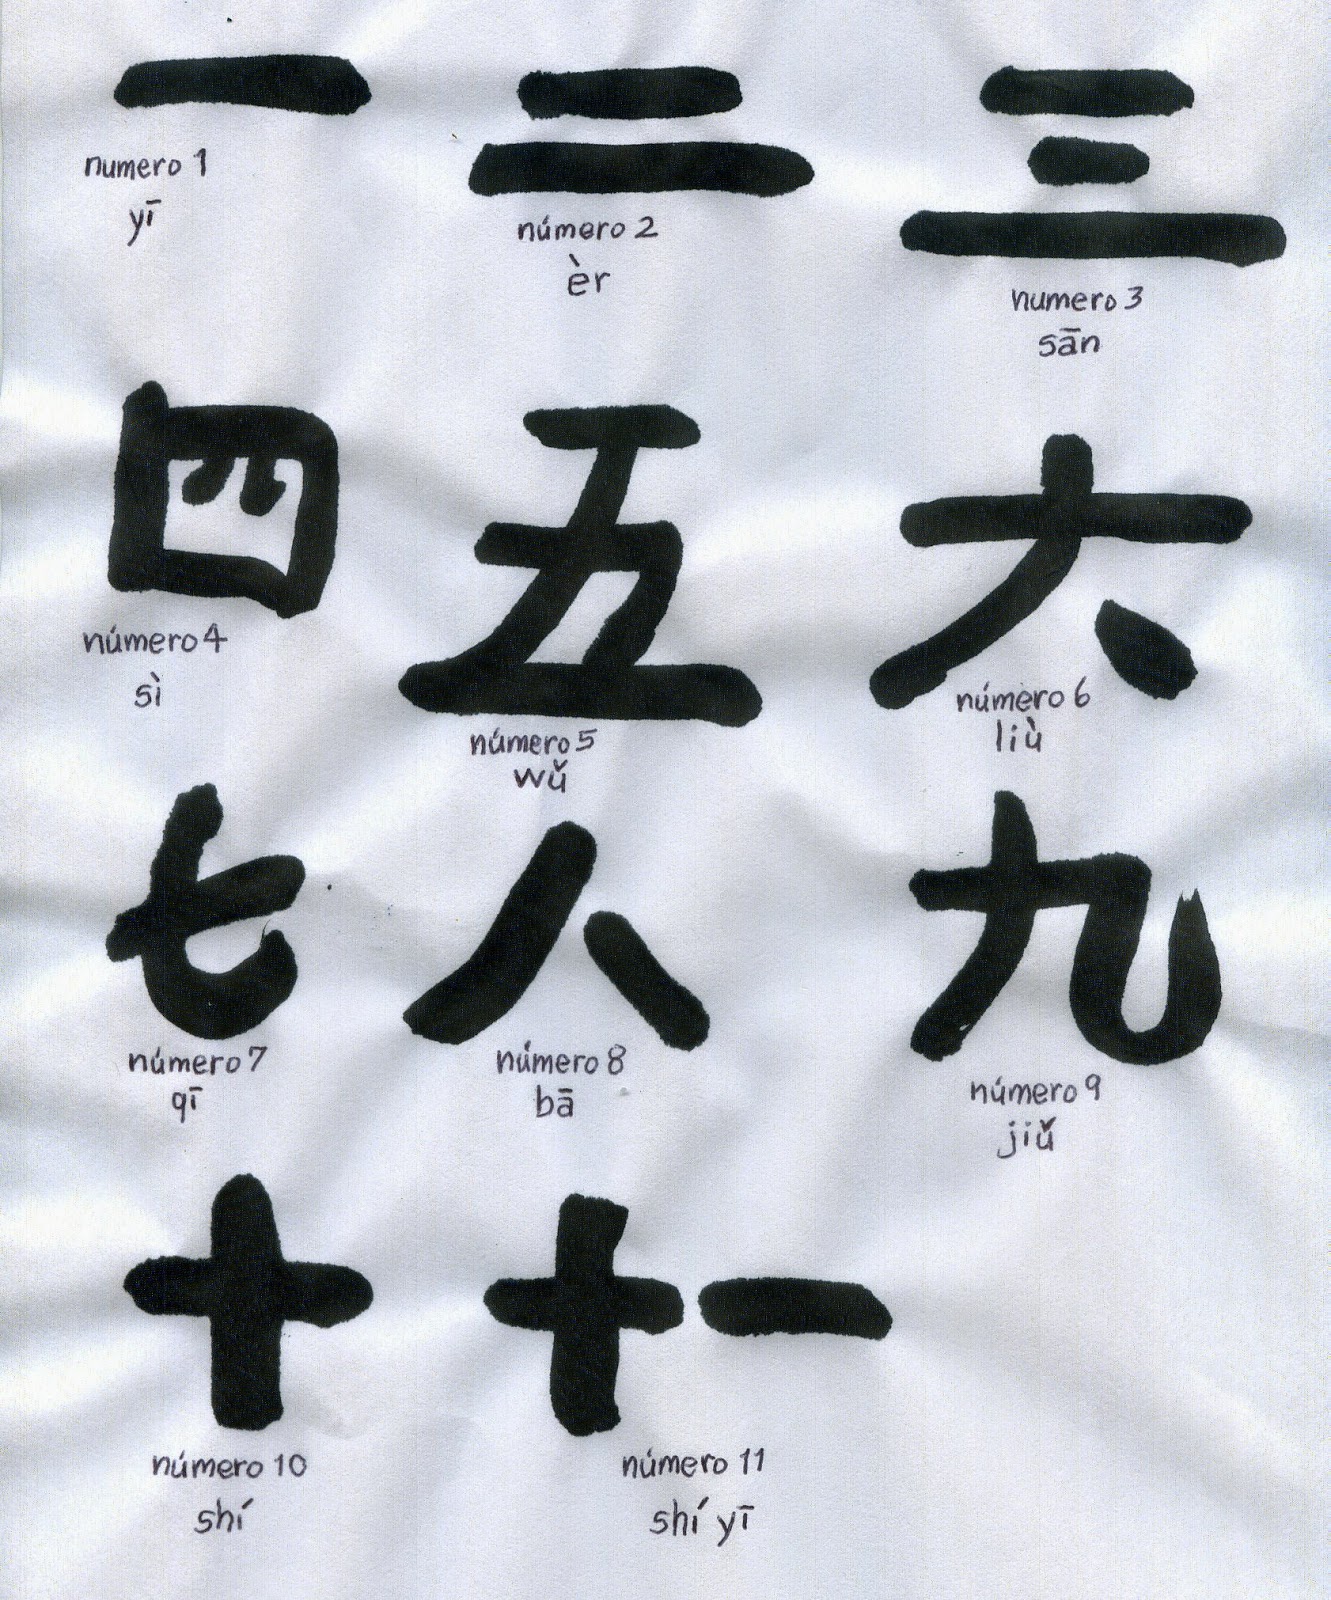 一 二 三
numero 1
yī
número 2
èr
numero 3
sān
四 五 六
número 4
sì
número 5
wǔ
número 6
liù
七 八 九
número 7
qī
número 8
bā
número 9
jiǔ
十 十一
número 10
shí
número 11
shí yī